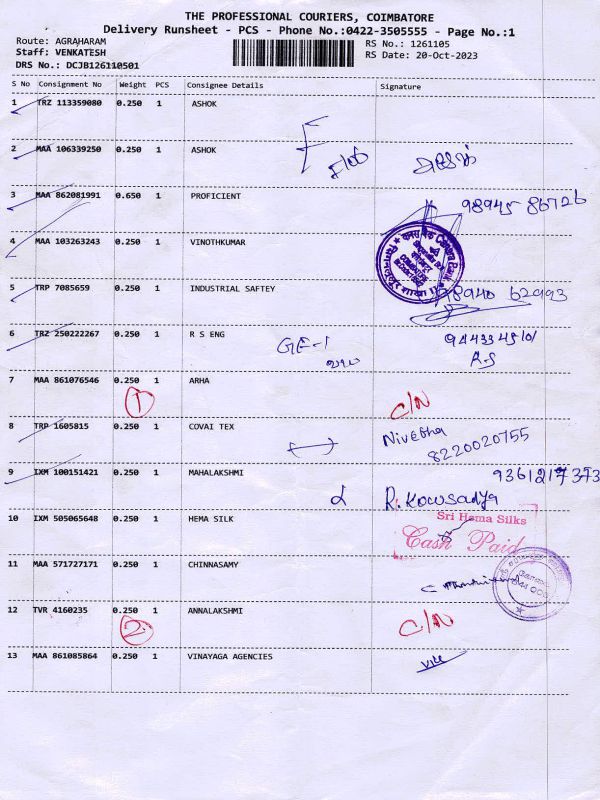 THE PROFESSIONAL COURIERS, COIMBATORE
Delivery Runsheet - PCS - Phone No.:0422-3505555 - Page No.:1
Route: AGRAHARAM
RS No.: 1261105
Staff: VENKATESH
RS Date: 20-Oct-2023
DRS No.: DCJB126110501
S No Consignment No Weight PCS Consignee Details Signature
1 TRZ 113359080 0.250 1 ASHOK
2 MAA 106339250 0.250 1 ASHOK
3 MAA 862081991 0.650 1 PROFICIENT 98945 86726
4 MAA 103263243 0.250 1 VINOTHKUMAR
5 TRP 7085659 0.250 1 INDUSTRIAL SAFTEY 98940 62993
6 TRZ 250222267 0.250 1 R S ENG
7 MAA 861076546 0.250 1 ARHA
1 C/N
8 TRP 1605815 0.250 1 COVAI TEX Nivebha
8220020755
9 IXM 100151421 0.250 1 MAHALAKSHMI
R. Kowsadya
10 IXM 505065648 0.250 1 HEMA SILK Sri Hema Silks
Cash Paid
11 MAA 571727171 0.250 1 CHINNASAMY
12 TVR 4160235 0.250 1 ANNALAKSHMI
2 C/N
13 MAA 861085864 0.250 1 VINAYAGA AGENCIES